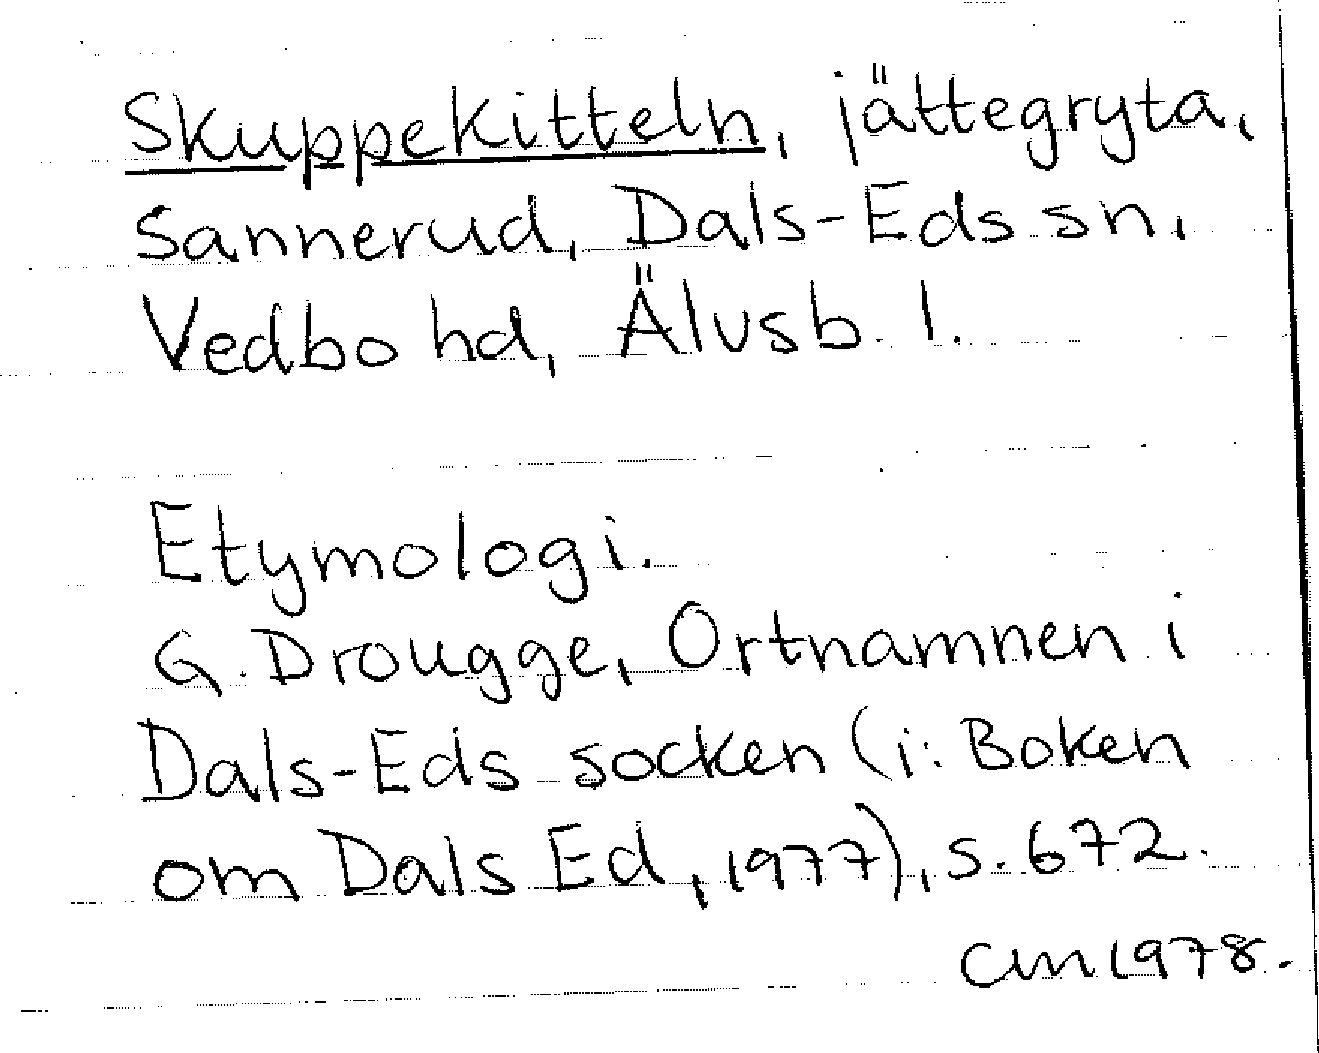 Skuppekitteln, jättegryta,
Sannerud, Dals-Eds sn,
Vedbo hd, Älvsb. l.
Etymologi.
G. Drougge, Ortnamnen i
Dals-Eds socken (i: Boken
om Dals Ed, 1977), s. 672.
CM 1978.